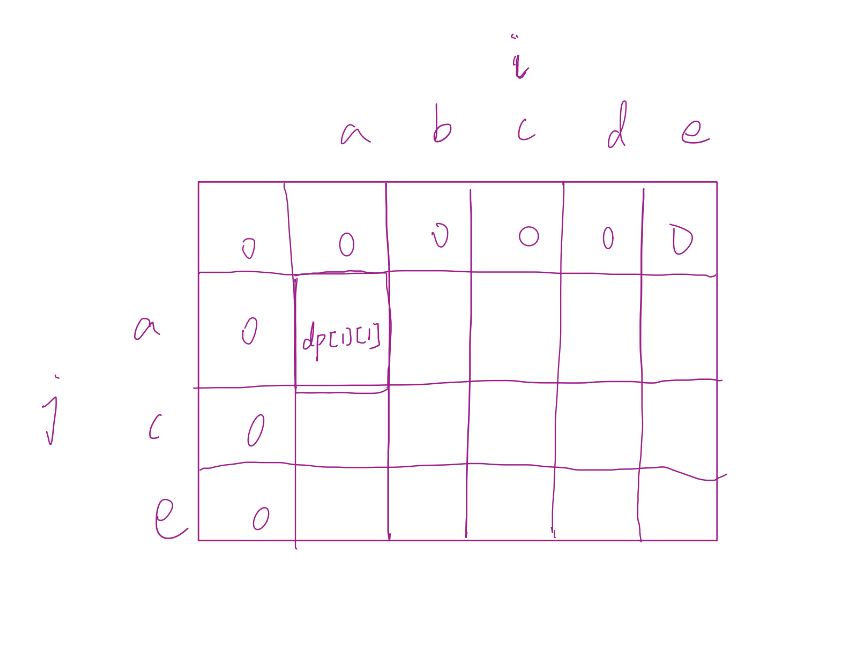 i
a b c d e
0 0 0 0 0 0
a 0 dp[1][1]
j
c 0
e 0